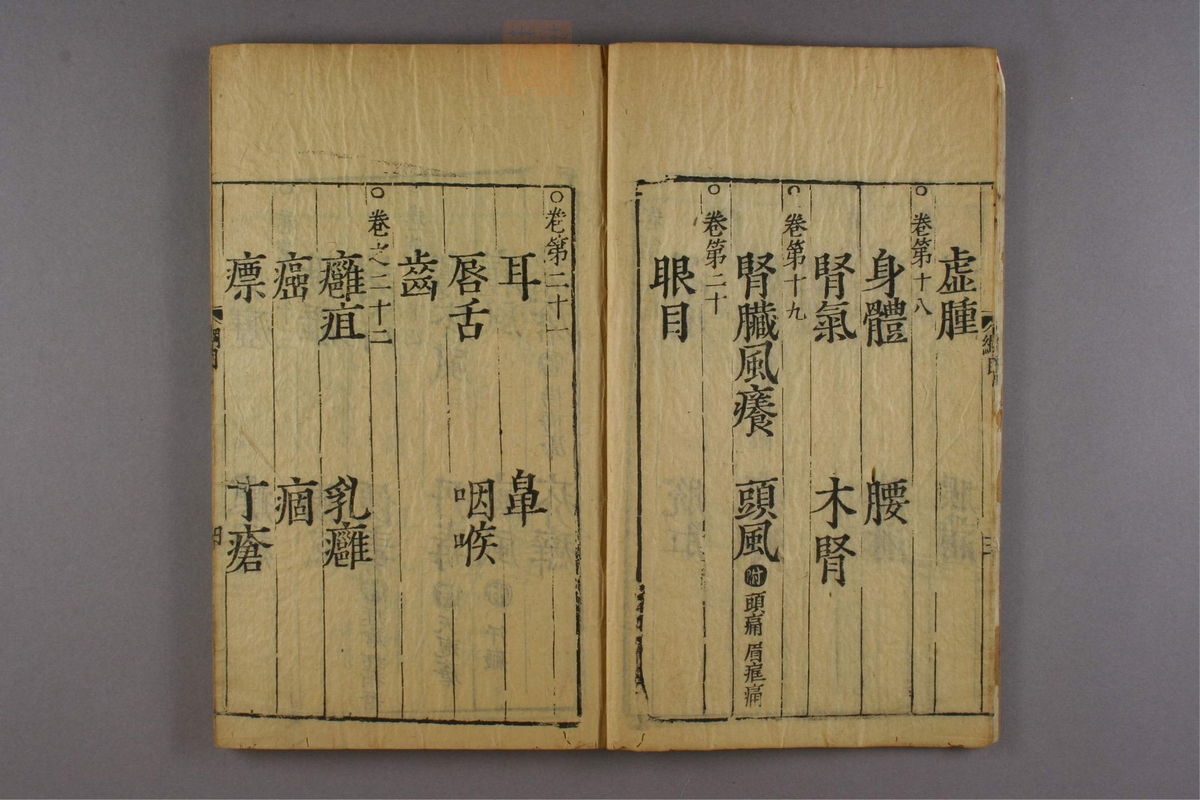 虛腫
○卷第十八
身體 腰
腎氣 木腎
○卷第十九
腎臟風癢 頭風 附 頭痛 眉眶痛
○卷第二十
眼目
○卷第二十一
耳 鼻
唇舌 咽喉
齒
○卷之二十二
癰疽 乳癰
癌 痼
瘭 丁瘡